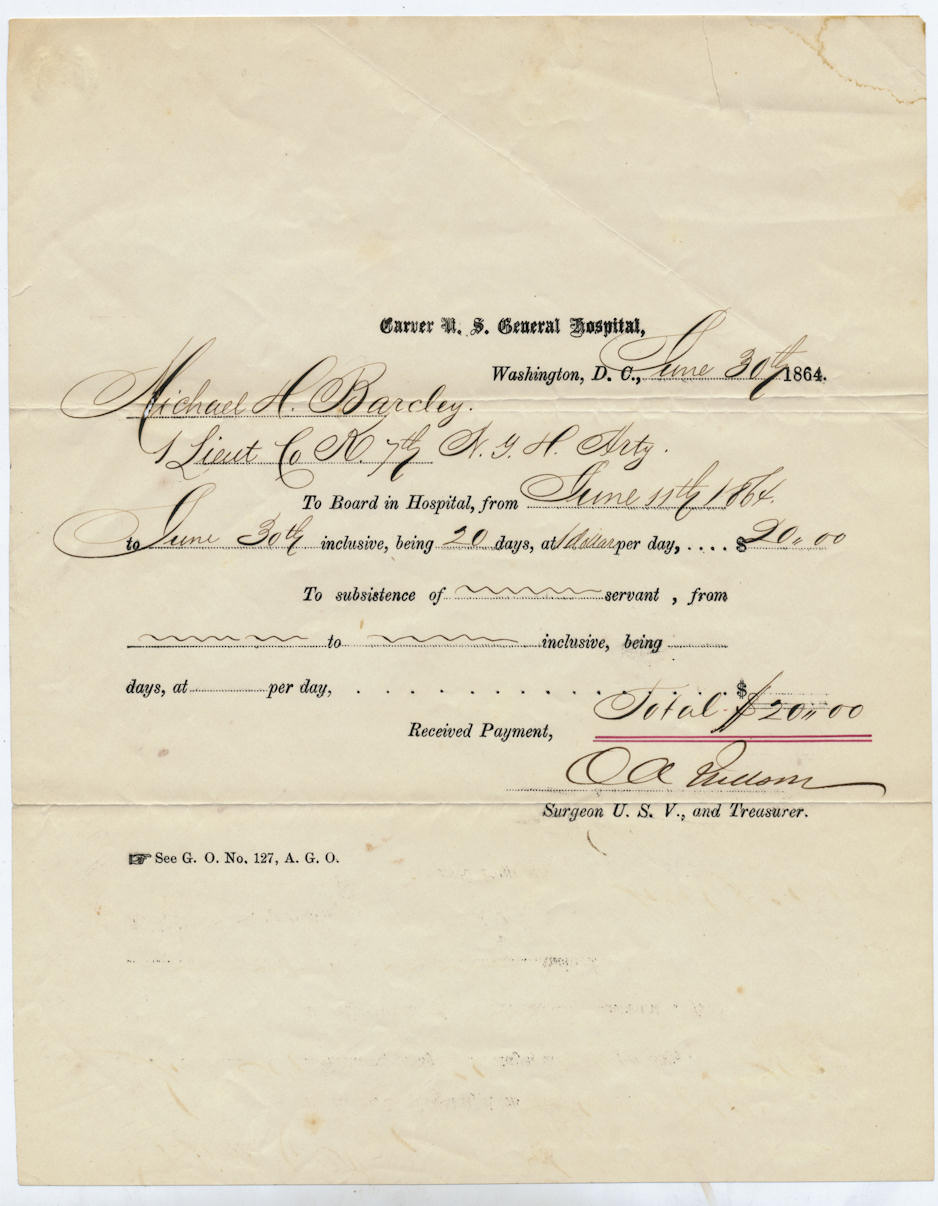 Carver U. S. General Hospital,
Washington, D. C., June 30th 1864.
Michael H. Barclay.
1 Lieut Co K. 7th N. Y. H. Arty.
To Board in Hospital, from June 11th 1864.
to June 30th inclusive, being 20 days, at 1 dollar per day, .... $20.00
To subsistence of servant , from
to inclusive, being
days, at per day, . . . . . . . . . . . . . . $
Total $20.00
Received Payment,
O A
Surgeon U. S. V., and Treasurer.
☞ See G. O. No. 127, A. G. O.